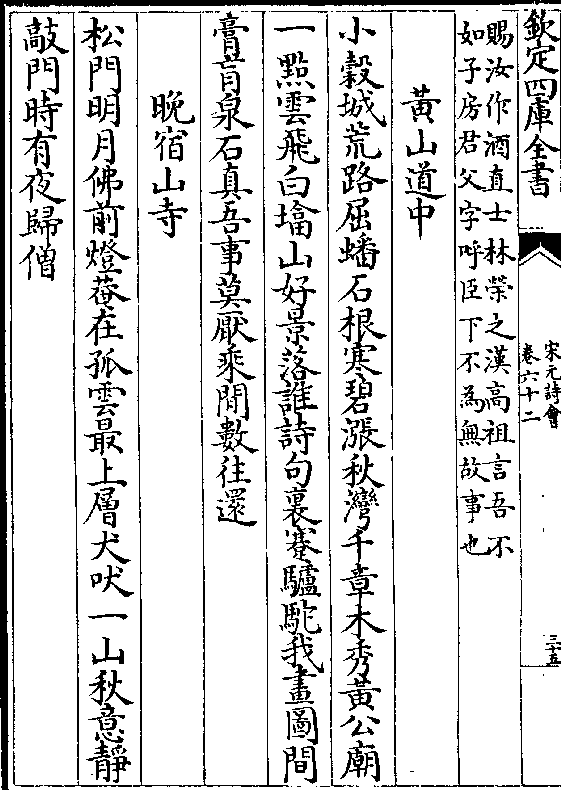 欽定四庫全書
宋元詩會
卷六十二
三十五
賜汝作酒直士林榮之漢高祖言吾不
如子房君父字呼臣下不為無故事也
黃山道中
小穀城荒路屈蟠石根寒碧漲秋灣千章木秀黃公廟
一㸃雲飛白塔山好景落誰詩句裏蹇驢馱我畫圖間
膏肓泉石真吾事莫厭乘閒數往還
晚宿山寺
松門明月佛前燈菴在孤雲最上層犬吠一山秋意靜
敲門時有夜歸僧